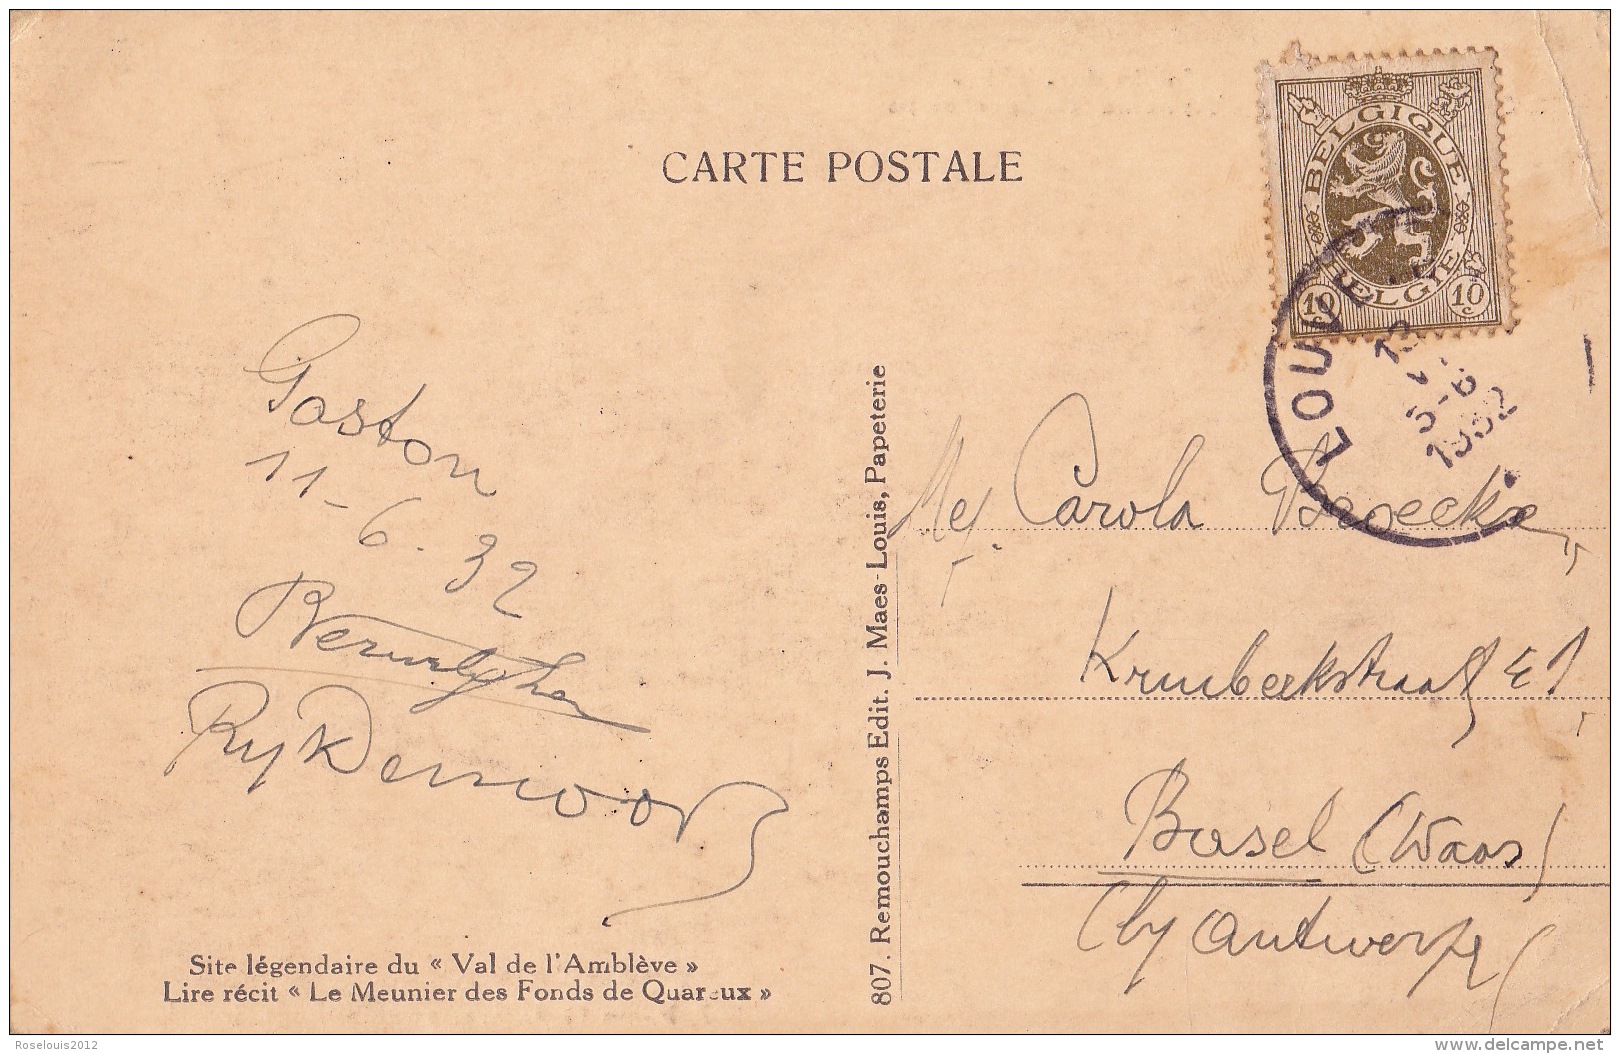 CARTE POSTALE
BELGIQUE
BELGIE
10 c
10 c
LOUV
5-6
1932
Gaston
11-6.32
Site légendaire du « Val de l'Amblève »
Lire récit « Le Meunier des Fonds de Quareux »
807. Remouchamps Edit. J. Maes-Louis, Papeterie
Carola
Krubeekstraat 41
Basel (Waas)
(by Antwerpen)
Roselouis2012
www.delcampe.net